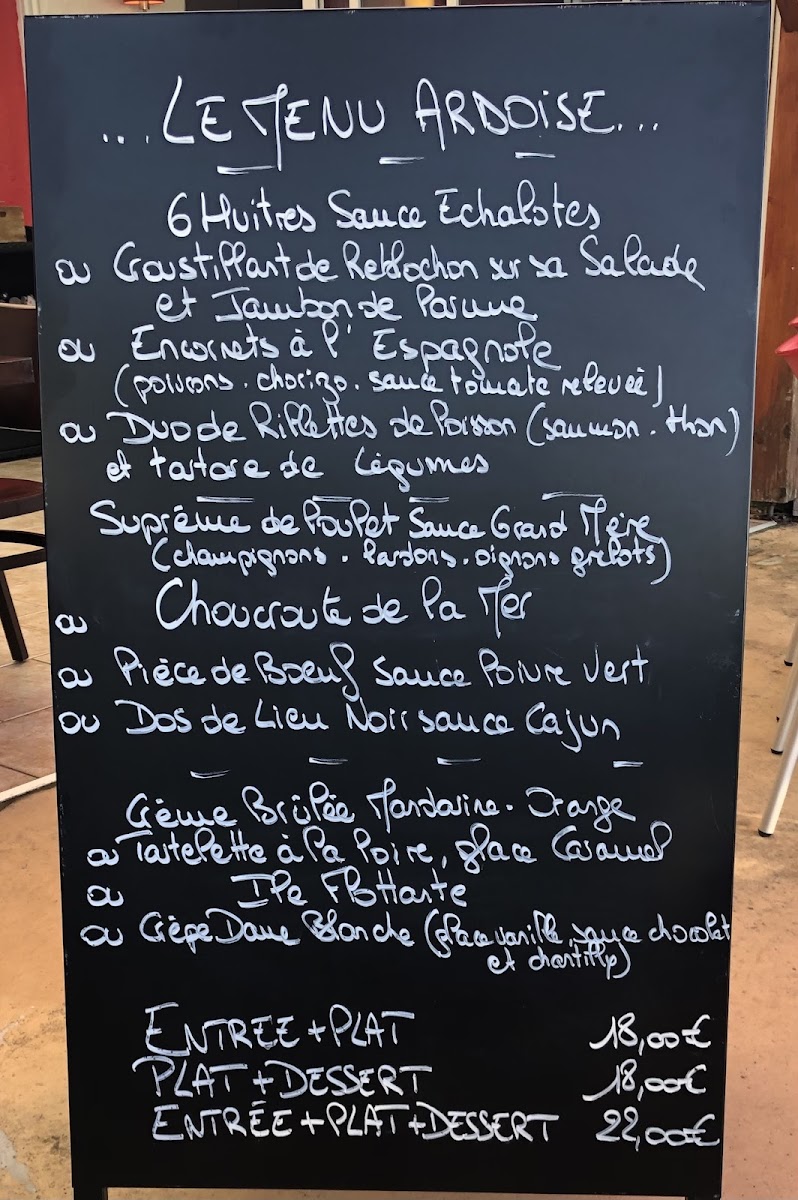 ...LE MENU ARDOISE...
6 Huitres Sauce Echalotes
ou Croustillant de Reblochon sur sa Salade
et Jambon de Parme
ou Encornets à l'Espagnole
(poivrons. chorizo. sauce tomate relevée)
ou Duo de Rillettes de Poisson (saumon. thon)
et tartare de Légumes
Suprême de Poulet Sauce Grand Mère
(champignons. lardons. oignons grelots)
ou Choucroute de la Mer
ou Pièce de Boeuf Sauce Poivre Vert
ou Dos de Lieu Noir sauce Cajun
Crème Brûlée Mandarine. Orange
ou Tartelette à la Poire, glace Caramel
ou Ile Flottante
ou Crêpe Dame Blanche (glace vanille, sauce chocolat
et chantilly)
ENTREE+PLAT 18,00€
PLAT+DESSERT 18,00€
ENTRÉE+PLAT+DESSERT 22,00€